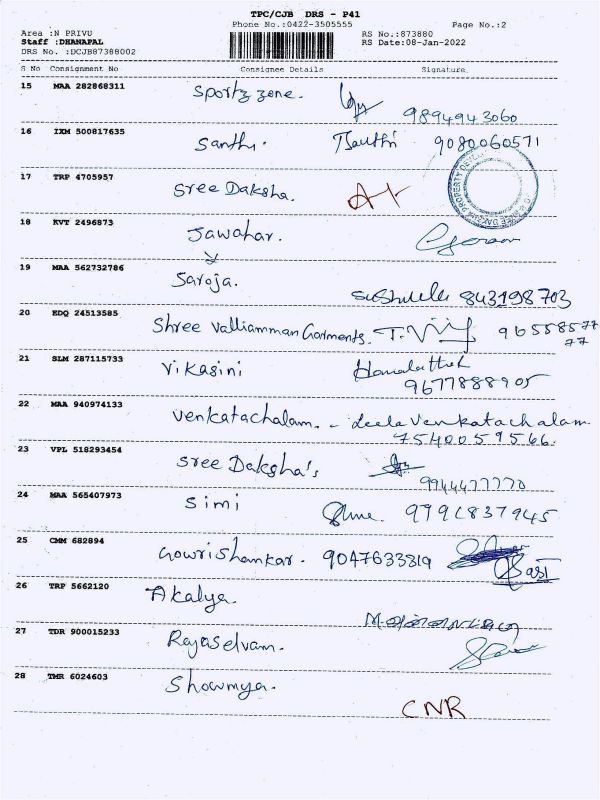 TPC/CJB DRS - P41
Phone No.:0422-3505555 Page No.:2
Area :N PRIVU RS No.:873880
Staff :DHANAPAL RS Date:08-Jan-2022
DRS No. :DCJB87388002
S No Consignment No Consignee Details Signature
15 MAA 282868311 Sportz zone.
9894943060
16 IXM 500817635 Santhi. 9080060571
17 TRP 4705957 Sree Daksha.
18 KVT 2496873 Jawahar.
19 MAA 562732786 Saroja.
843198703
20 EDQ 24513585 Shree Valliamman Garments. 965585777
77
21 SLM 287115733 Vikasini
9677888905
22 MAA 940974133 Venkatachalam. - Leela Venkatachalam.
7540059566.
23 VPL 518293454 Sree Daksha's
9944477770
24 MAA 565407973 Simi 9791837945
25 CMM 682894 Gowrishankar. 9047633819
26 TRP 5662120 Akalya.
27 TDR 900015233 Rajaselvam.
28 TMR 6024603 Showmya.
CNR